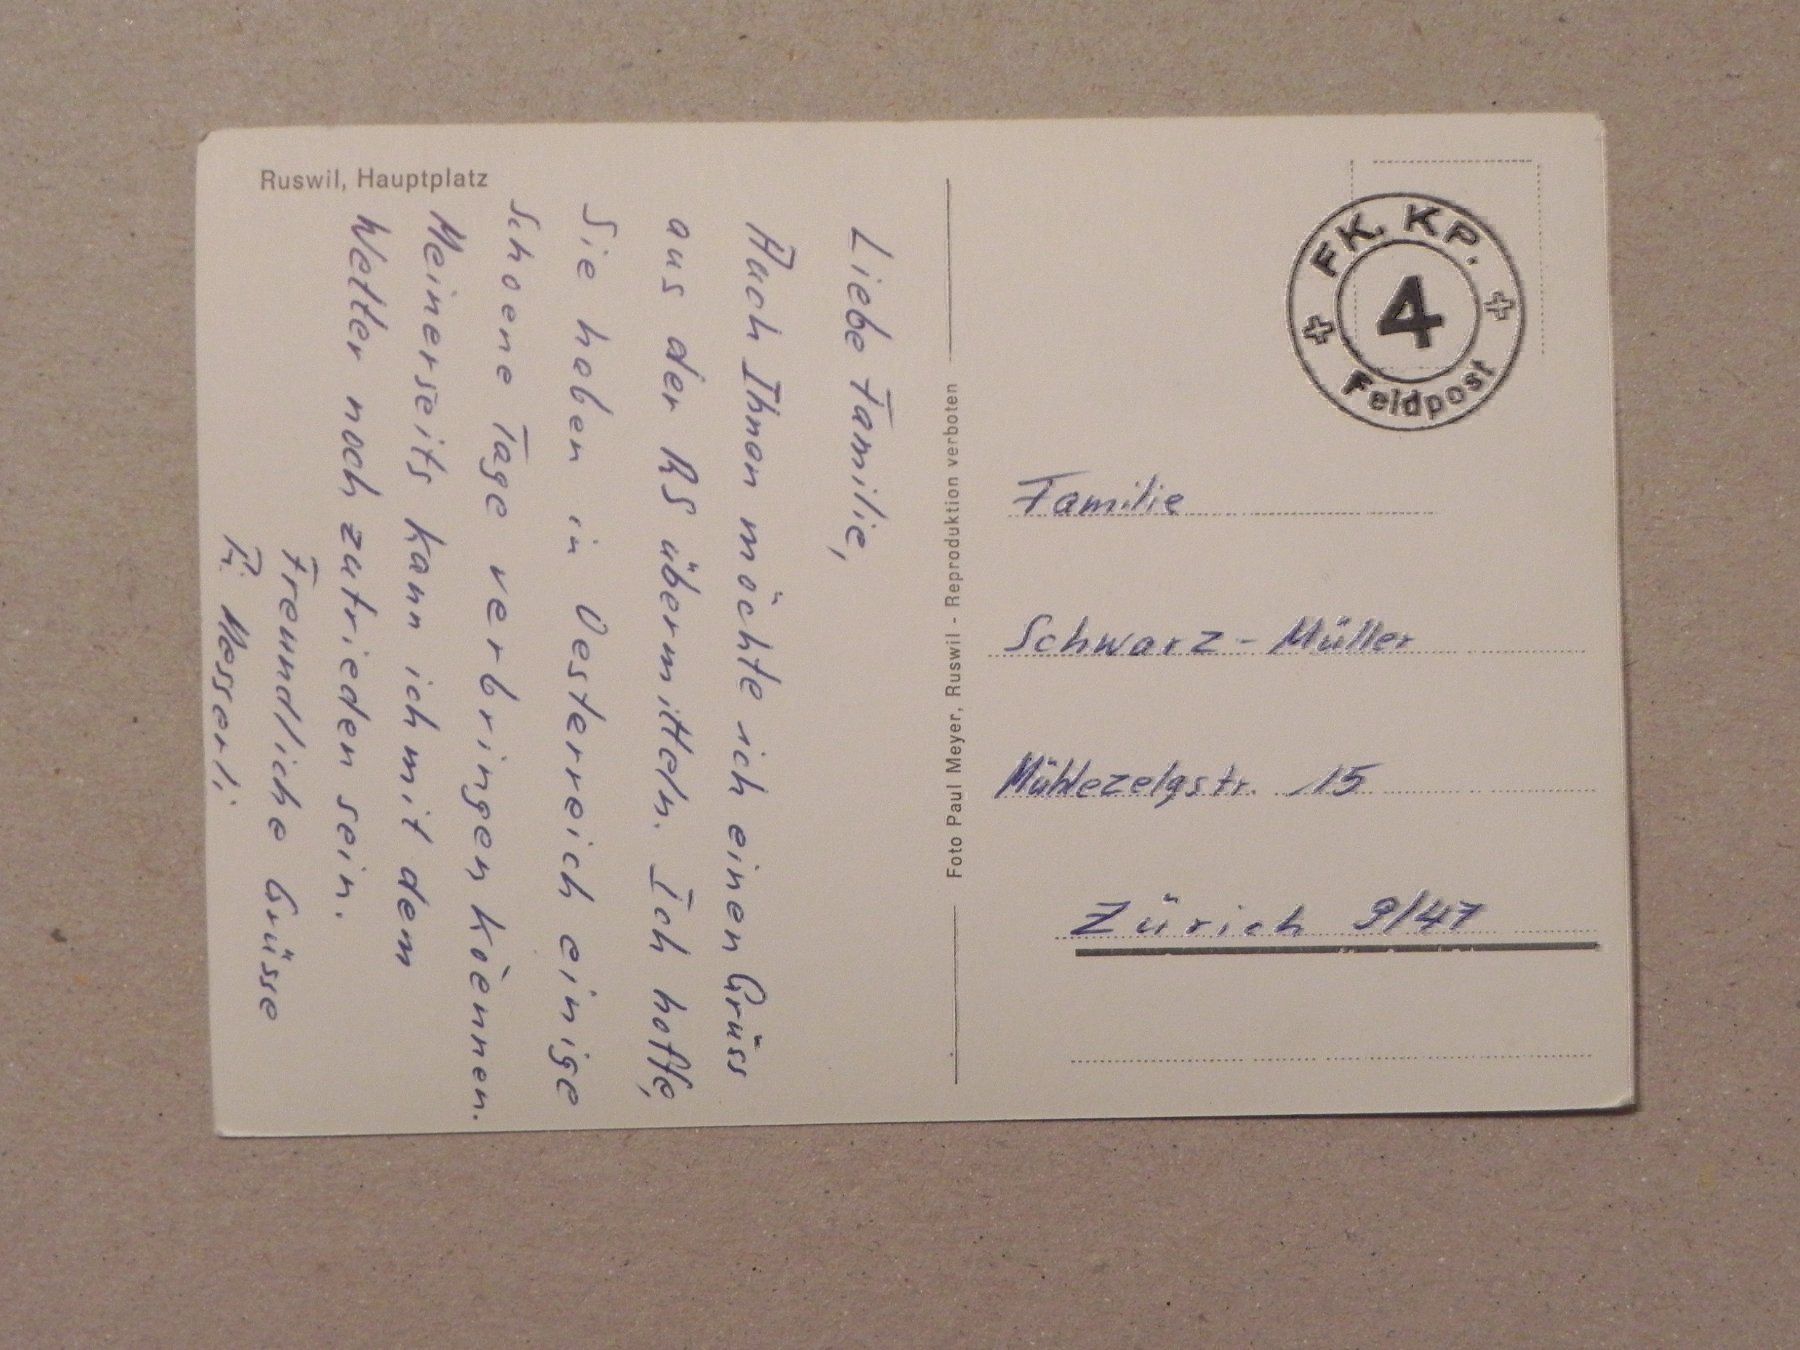 Ruswil, Hauptplatz
Liebe Familie,
Auch Ihnen möchte ich einen Grüss
aus der RS übermitteln. Ich hoffe,
Sie haben in Oesterreich einige
schoene Tage verbringen köennen.
Meinerseits kann ich mit dem
Wetter noch zufrieden sein.
Freundliche Grüsse
Messerli
Foto Paul Meyer, Ruswil - Reproduktion verboten
FK. KP.
4
Feldpost
Familie
Schwarz-Müller
Mühlezelgstr. 15
Zürich 9/47